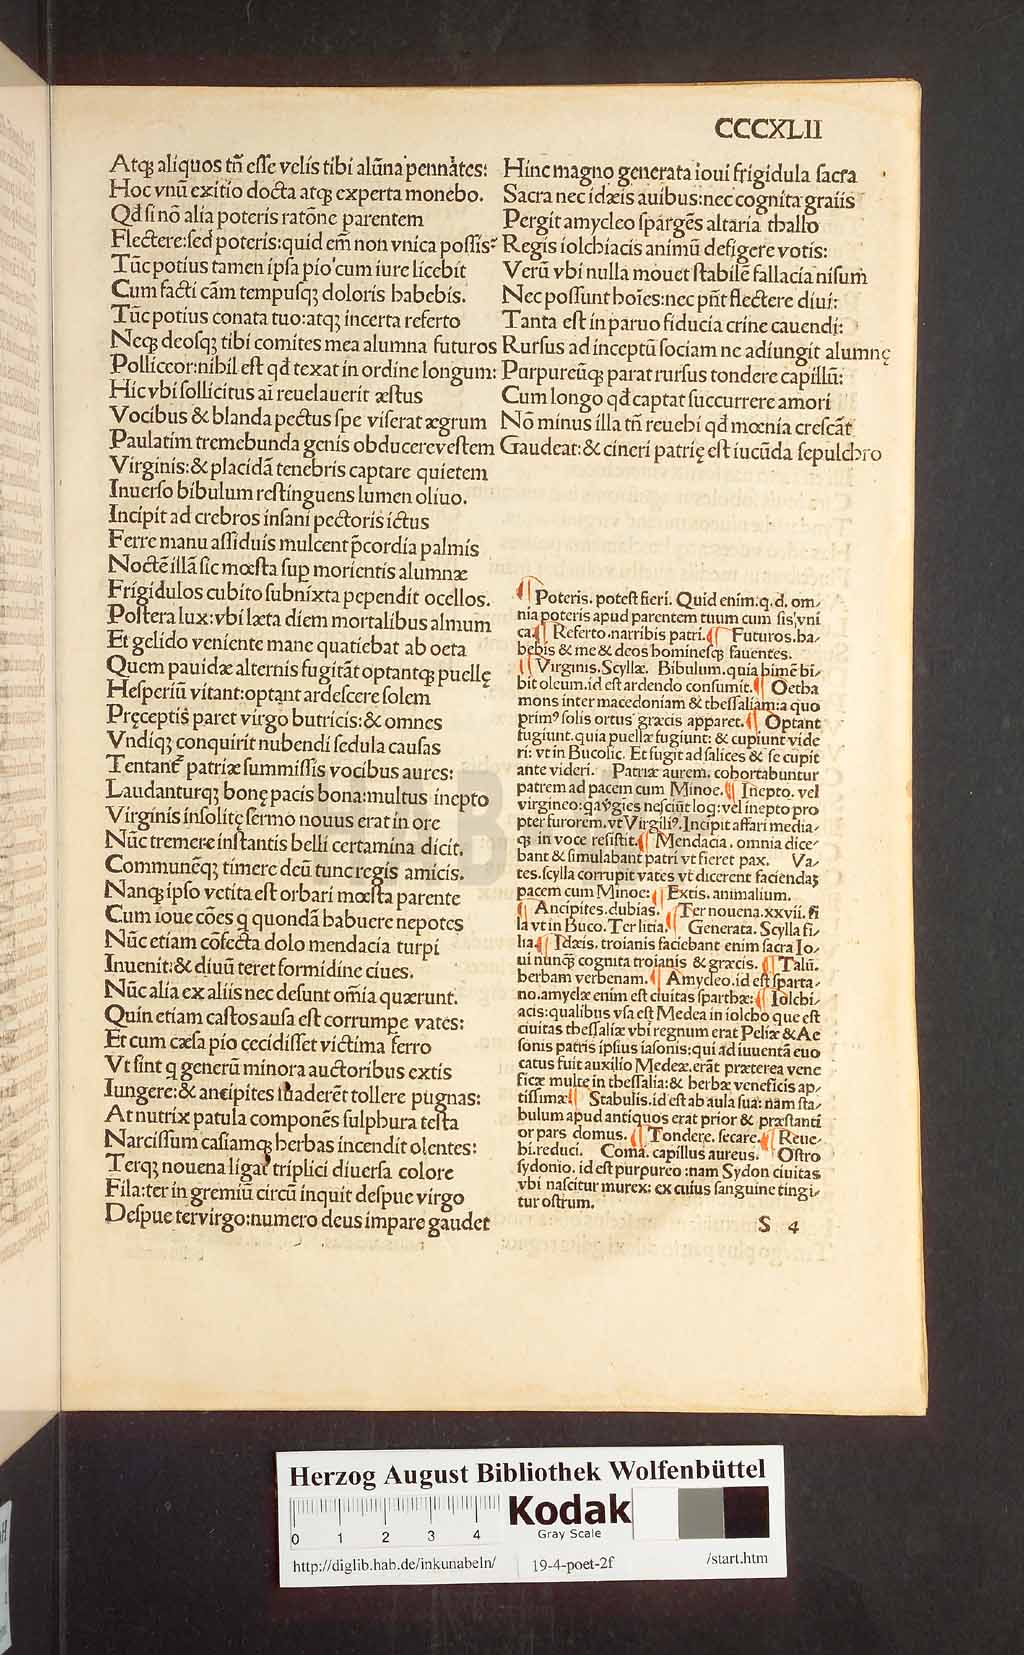 CCCXLII
Atqȝ aliquos tñ esse velis tibi alūna pennates:
Hoc vnū exitio docta atqȝ experta monebo.
Qd si nō alia poteris ratōne parentem
Flectere: sed poteris: quid em̄ non vnica possis?
Tūc potius tamen ipsa pio cum iure licebit
Cum facti cām tempusqȝ doloris habebis.
Tūc potius conata tuo: atqȝ incerta referto
Neqȝ deosqȝ tibi comites mea alumna futuros
Polliceor: nibil est qđ texat in ordine longum:
Hic vbi sollicitus ai reuelauerit æstus
Vocibus & blanda pectus spe viserat ægrum
Paulatim tremebunda genis obducere vestem
Virginis: & placidā tenebris captare quietem
Inuerso bibulum restinguens lumen oliuo.
Incipit ad crebros insani pectoris ictus
Ferre manu assiduis mulcent p̄cordia palmis
Noctē illā sic mœsta sup morientis alumnæ
Frigidulos cubito subnixta pependit ocellos.
Postera lux: vbi læta diem mortalibus almum
Et gelido veniente mane quatiebat ab oeta
Quem pauidæ alternis fugitāt optantqȝ puellę
Hesperiū vitant: optant ardescere solem
Pręceptis paret virgo butricis: & omnes
Vndiqȝ conquirit nubendi sedula causas
Tentant̄ patriæ summissis vocibus aures:
Laudanturqȝ bonę pacis bona: multus inepto
Virginis insolitę sermo nouus erat in ore
Nūc tremere instantis belli certamina dicit.
Communēqȝ timere deū tunc regis amicis.
Nanqȝ ipso vetita est orbari mœsta parente
Cum ioue cōes q quondā babuere nepotes
Nūc etiam cōfecta dolo mendacia turpi
Inuenit: & diuū teret formidine ciues.
Nūc alia ex aliis nec desunt om̄ia quærunt.
Quin etiam castos ausa est corrumpe vates:
Et cum cæsa pio cecidisset victima ferro
Vt sint q generū minora auctoribus extis
Iungere: & ancipites suaderēt tollere pugnas:
At nutrix patula componēs sulpbura testa
Narcissum casiamqȝ berbas incendit olentes:
Terqȝ nouena ligat triplici diuersa colore
Fila: ter in gremiū circū inquit despue virgo
Despue ter virgo: numero deus impare gaudet
Hinc magno generata ioui frigidula sacra
Sacra nec idæis auibus: nec cognita graiis
Pergit amycleo spargēs altaria tballo
Regis iolcbiacis animū defigere votis:
Verū vbi nulla mouet stabilē fallacia nisum
Nec possunt hoies: nec pn̄t flectere diui:
Tanta est in paruo fiducia crine cauendi:
Rursus ad inceptū sociam ne adiungit alumnę
Purpureūqȝ parat rursus tondere capillū:
Cum longo qđ captat succurrere amori
Nō minus illa tn̄ reuebi qđ mœnia crescāt
Gaudeat: & cineri patrię est iucūda sepulcbro
¶ Poteris. potest fieri. Quid enim. q. d. om⸗
nia poteris apud parentem tuum cum sis vni
ca. ¶ Referto. narribis patri. ¶ Futuros. ba⸗
bebis & me & deos bominesqȝ fauentes.
¶ Virginis. Scyllæ. Bibulum. quia bimē bi⸗
bit oleum. id est ardendo consumit. ¶ Oetba
mons inter macedoniam & tbessaliam: a quo
primꝰ solis ortus græcis apparet. ¶ Optant
fugiunt. quia puellæ fugiunt: & cupiunt vide
ri: vt in Bucolic. Et fugit ad salices & se cupit
ante videri. Patriæ aurem. cobortabuntur
patrem ad pacem cum Minoe. ¶ Inepto. vel
virgineo: qa v̄gies nesciūt loq: vel inepto pro
pter furorem. vt Virgiliꝰ. Incipit affari media⸗
qȝ in voce resistit. ¶ Mendacia. omnia dice⸗
bant & simulabant patri vt fieret pax. Va⸗
tes. scylla corrupit vates vt dicerent faciendaȝ
pacem cum Minoe: ¶ Extis. animalium.
¶ Ancipites. dubias. ¶ Ter nouena. xxvii. fi
la vt in Buco. Ter litia. ¶ Generata. Scylla fi⸗
lia. ¶ Idæis. troianis faciebant enim sacra Io⸗
ui nunqȝ cognita troianis & græcis. ¶ Talū.
berbam verbenam. ¶ Amycleo. id est sparta⸗
no. amyclæ enim est ciuitas spartbæ: ¶ Iolcbi⸗
acis: qualibus vsa est Medea in iolcbo que est
ciuitas tbessaliæ vbi regnum erat Peliæ & Ae
sonis patris ipsius iasonis: qui ad iuuentā euo
catus fuit auxilio Medeæ. erāt præterea vene
ficæ multe in tbessalia: & berbæ veneficis ap⸗
tissimæ ¶ Stabulis. id est ab aula sua: nam sta⸗
bulum apud antiquos erat prior & præstanti
or pars domus. ¶ Tondere. secare. ¶ Reue⸗
bi. reduci. Coma. capillus aureus. Ostro
sydonio. id est purpureo: nam Sydon ciuitas
vbi nascitur murex: ex cuius sanguine tingi⸗
tur ostrum.
S 4
HAB
Herzog August Bibliothek Wolfenbüttel
0 1 2 3 4
Kodak
Gray Scale
http://diglib.hab.de/inkunabeln/ 19-4-poet-2f /start.htm